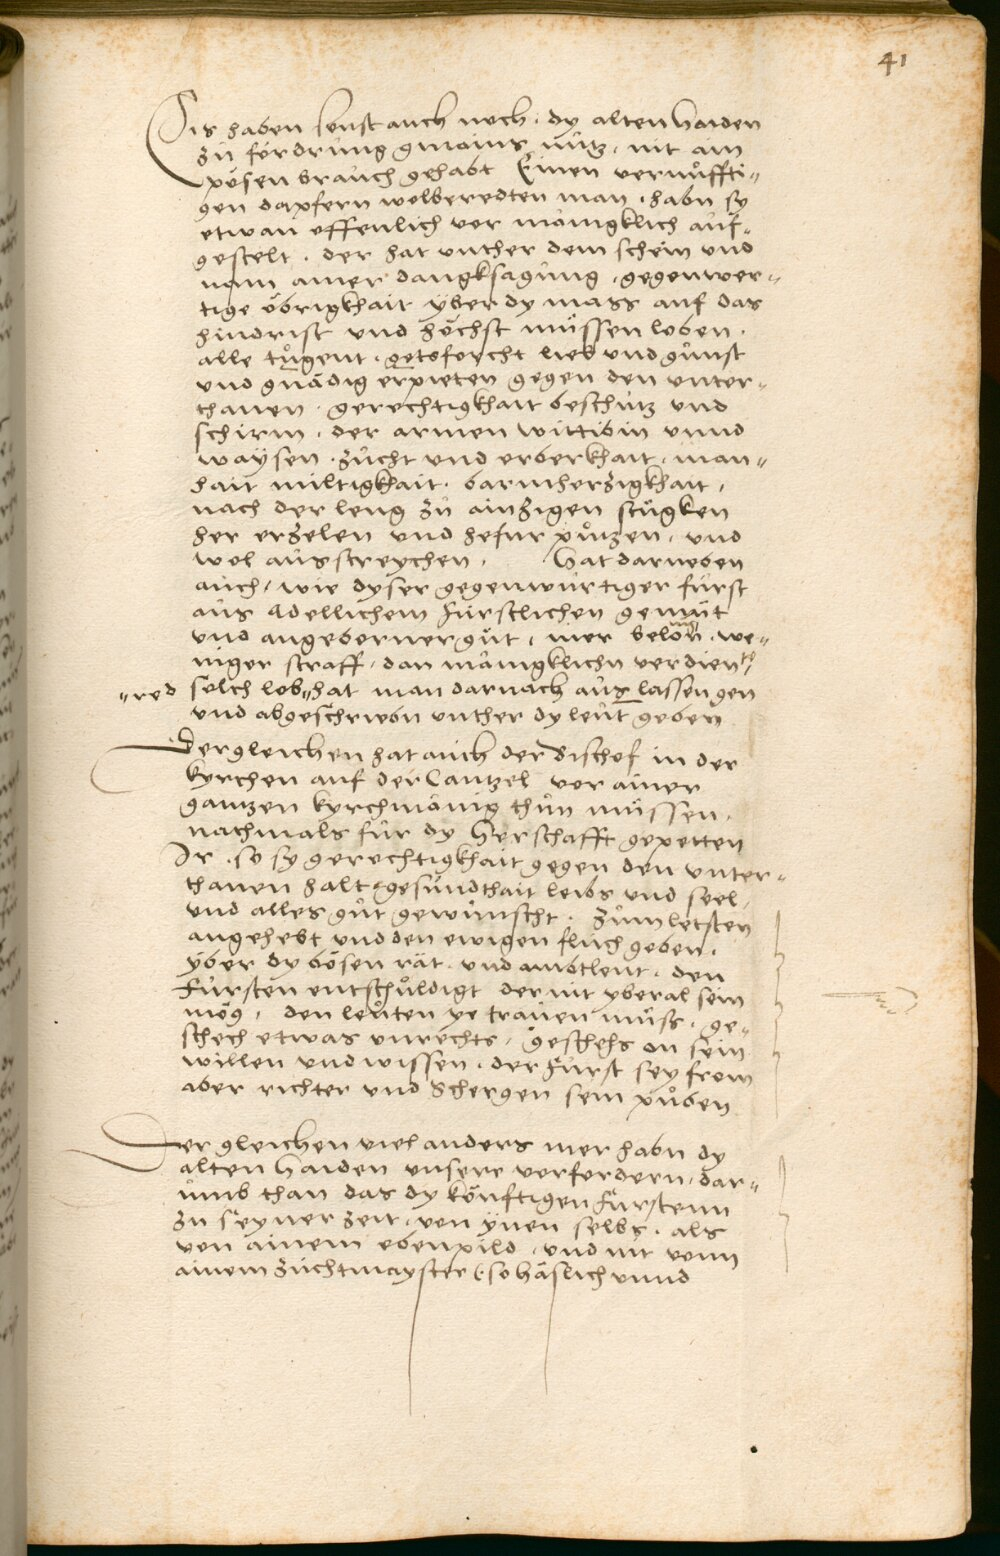 41
Eis haben sonst auch noch. dy alten Haiden
zů fördrůng gmains nůtz, nit ain
pösen brauch gehabt Einen vernůffti„
gen dapfern wolberedten man, habn sy
etwan offenlich vor mänigklich aůf„
gestelt. der hat vnther dem schein vnd
nam ainer dangksagůng, gegenwer„
tige öbrigkhait ÿber dy mass auf das
hindrist vnd höchst müssen loben.
alle tůgent. gotsforcht lieb vnd gůnst
vnd gnädig erpieten gegen den vnter„
thanen. gerechtigkhait beschütz vnd
schirm, der armen wittibin vnnd
waÿsen. zůcht vnd erberkhait, man„
hait miltigkhait. barmherzigkhait,
nach der leng zů ainzigen stügken
her erzelen vnd hefur půtzen, vnd
wol aůsstreychen. Hat darneben
auch, wie dyser gegenwürtiger fürst
aůs Adellichem Fürstlichen gemüt
vnd angeborner güt, mer belonung. we„
niger straff, dan mänigklichn verdienth,
„red solch lob„ hat man darnach aůs lassen gen
vnd abgeschribn vnther dy leůt geben
Dergleichen hat aůch der Bischof in der
kyrchen auf der Cantzel vor ainer
gantzen kyrchmänig thůn müssen,
nachmals für dy Herschafft gepetten
Ir. so sy gerechtigkhait gegen den vnter„
thanen halt, gesündthait leibs vnd seel,
vnd alles gůt gewünscht. zům letsten
angehebt vnd den ewigen flůch geben,
ÿber dy bösen rät. vnd ambtleut. den
Fürsten entschůldigt der nit yberal sein
mög, den leůten ye traůen můss, ge„
schech etwas vnrechts, geschehs on sein
willen vnd wissen. der Fürst sey from
aber richter vnd Schergen sein půben
Dergleichen viel anders mer habn dy
alten Haiden vnsere vorfordern, dar„
ůmb than das dy könftigen Fürstenn
zu seyner zeit, von ÿnen selbs. als
von ainem ebenpild, vnd nit vonn
ainem züchtmayster (so häslich vnnd